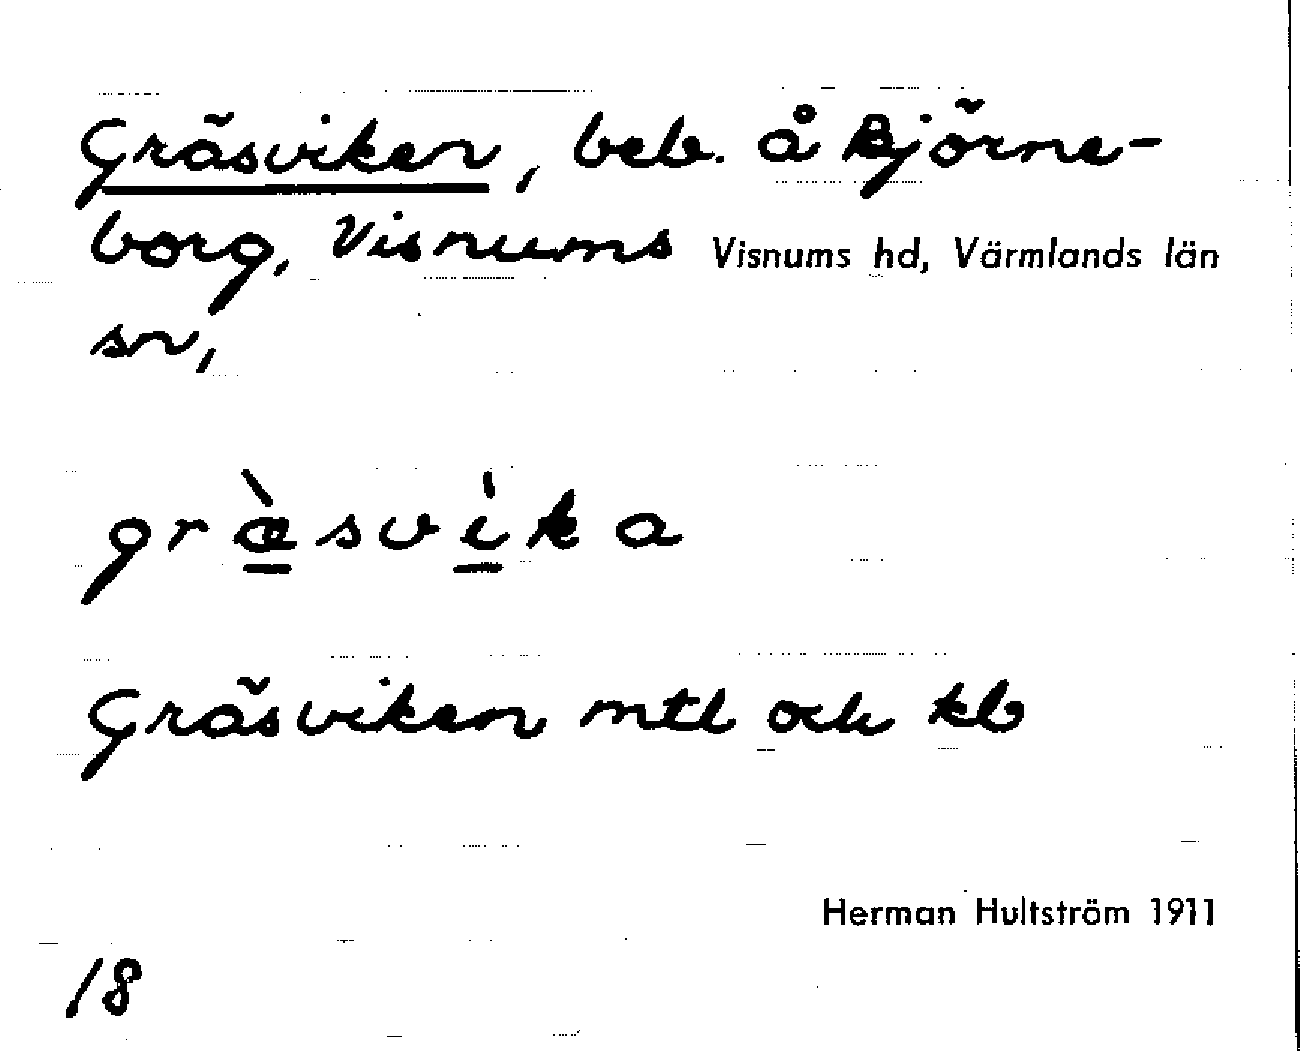 Gräsviken, beb. å Björne-
borg, Visnums Visnums hd, Värmlands län
sn,
græ̀svìka
Gräsviken mtl och kb
Herman Hultström 1911
18